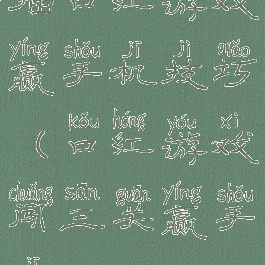 口红游戏
yíng shǒu jī jì qiǎo
赢手机技巧
kǒu hóng yóu xì
(口红游戏
chuǎng sān guān yíng shǒu
闯三关赢手
jī